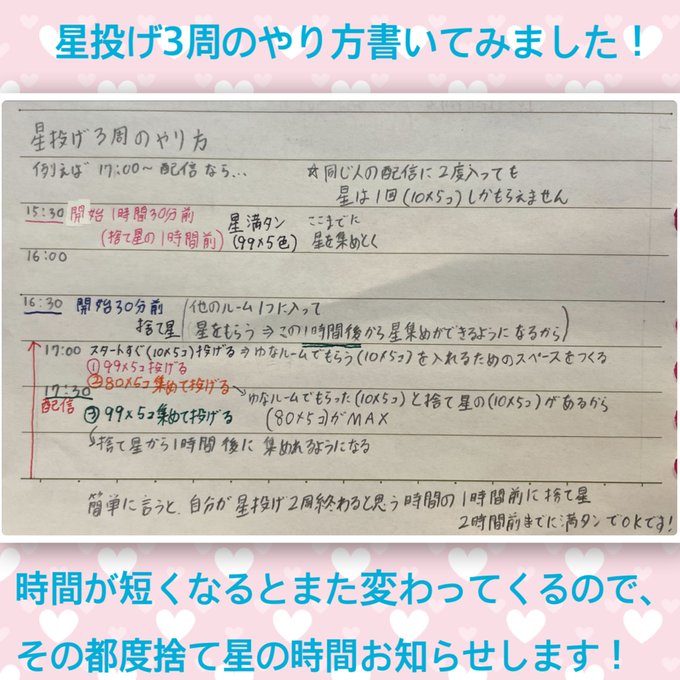 星投げ3周のやり方書いてみました！
星投げ3周のやり方
例えば 17:00～配信なら…
☆同じ人の配信に2度入っても
星は1回(10×5コ)しかもらえません
15:30 開始1時間30分前
(捨て星の1時間前)
星満タン
(99×5色)
ここまでに
星を集めとく
16:00
16:30 開始30分前
捨て星
(他のルーム1つに入って
星をもらう⇒この1時間後から星集めができるようになるから)
17:00 スタートすぐ(10×5コ)投げる⇒ゆなルームでもらう(10×5コ)を入れるためのスペースをつくる
①99×5コ投げる
②80×5コ集めて投げる
ゆなルームでもらった(10×5コ)と捨て星の(10×5コ)があるから
(80×5コ)がMAX
17:30
配信
③99×5コ集めて投げる
捨て星から1時間後に集めれるようになる
簡単に言うと、自分が星投げ2周終わると思う時間の1時間前に捨て星
2時間前までに満タンでOKです!
時間が短くなるとまた変わってくるので、
その都度捨て星の時間お知らせします！